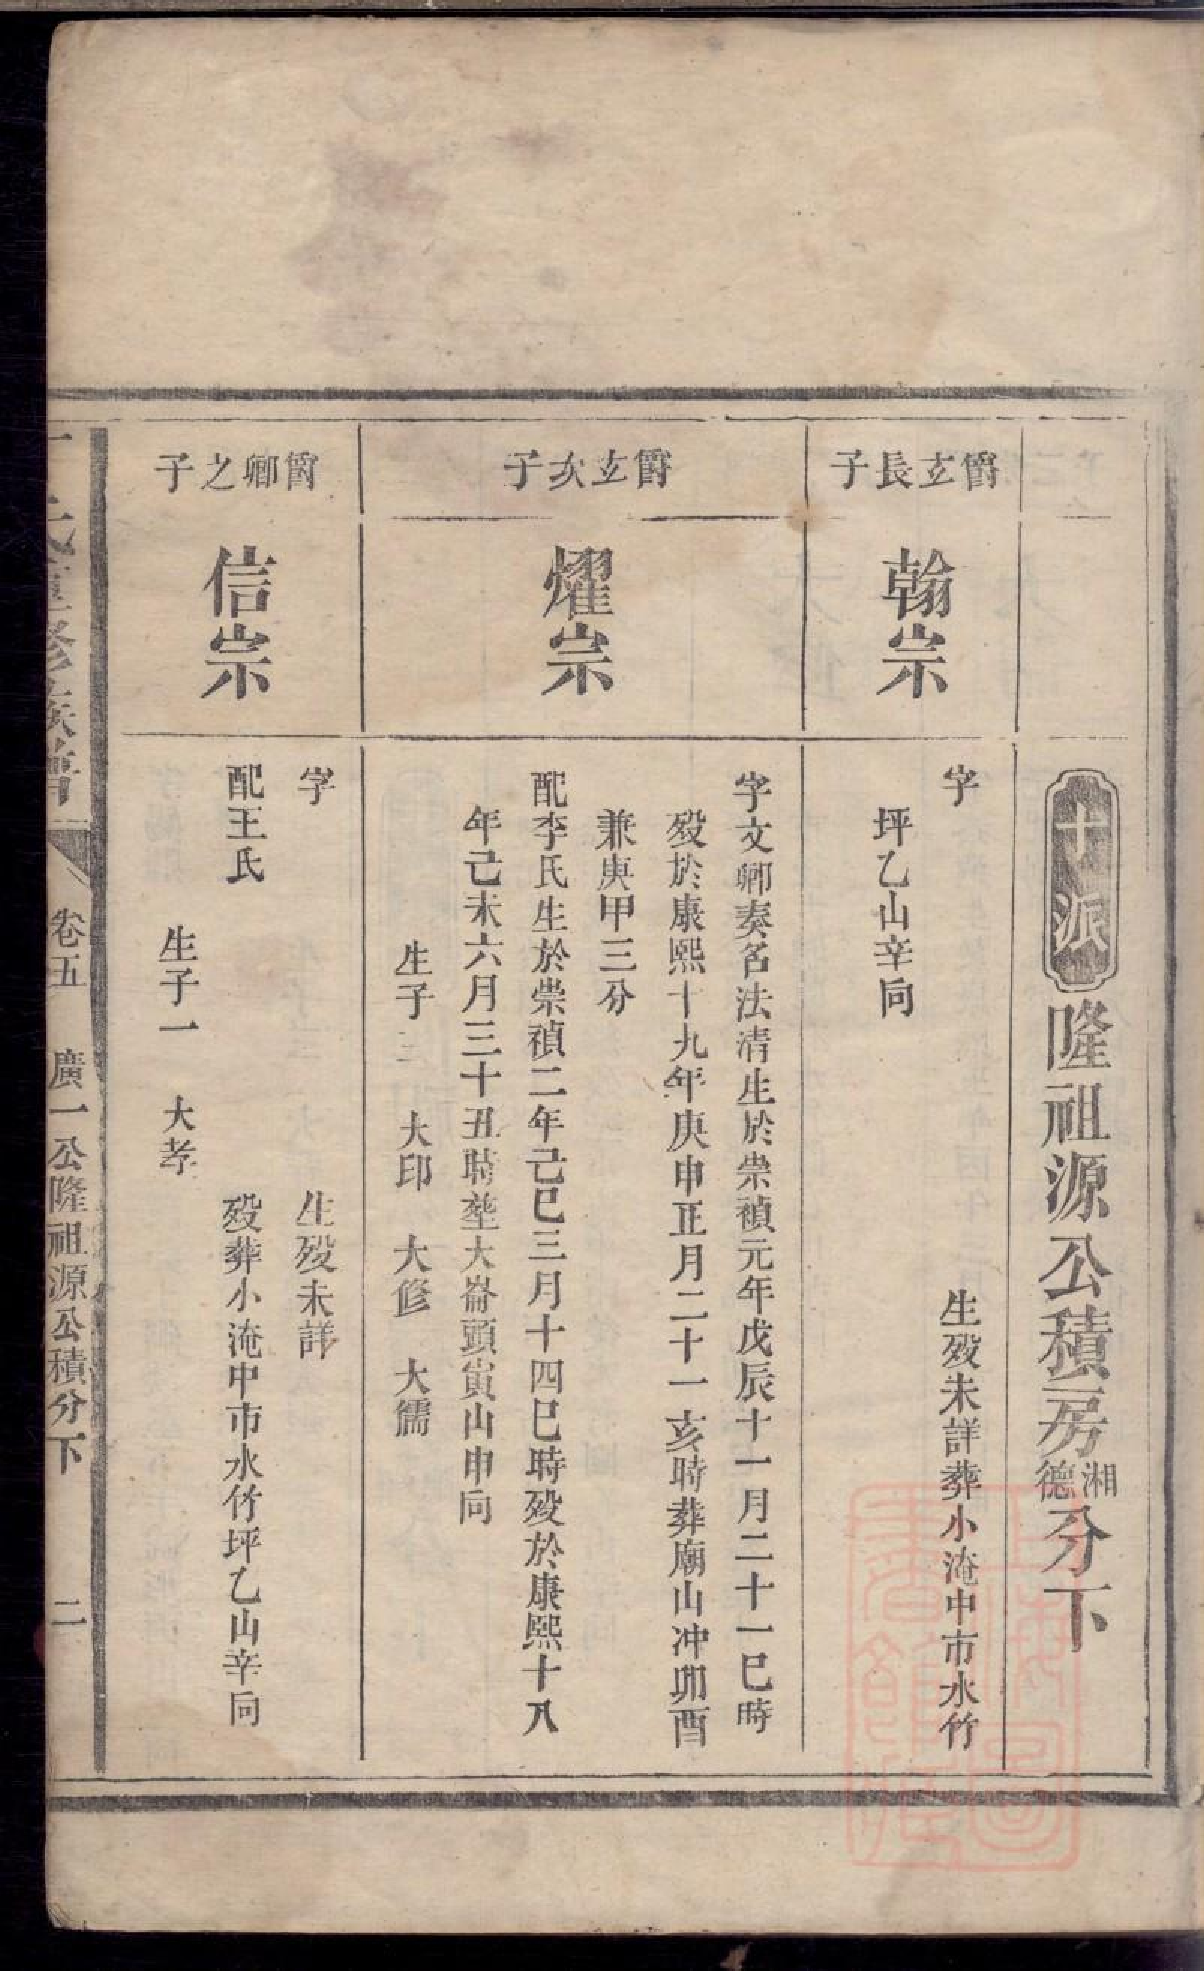 十派
隆祖源公積房湘德分下
爵玄長子
翰宗
字 生歿未詳葬小淹中市水竹
坪乙山辛向
爵玄次子
燿宗
字文卿奏名法清生於崇禎元年戊辰十一月二十一巳時
歿於康熙十九年庚申正月二十一亥時葬廟山冲卯酉
兼庚甲三分
配李氏生於崇禎二年己巳三月十四巳時歿於康熙十八
年己未六月三十丑時塟大崙頭寅山申向
生子三 大印 大修 大儒
爵卿之子
信宗
字 生歿未詳
配王氏 歿葬小淹中市水竹坪乙山辛向
生子一 大孝
氏重修族譜 卷五 廣一公隆祖源公積分下 二